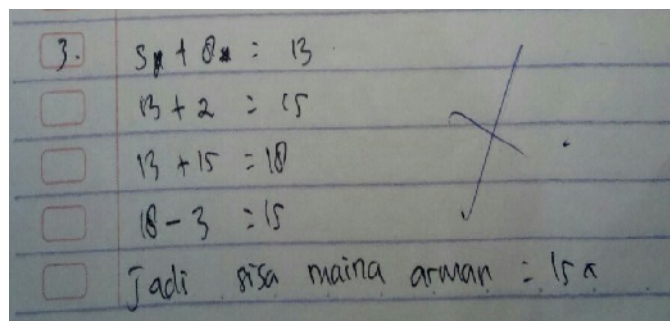 3. 5x + 8x = 13
13 + 2 = 15
13 + 15 = 18
18 - 3 = 15
Jadi sisa maina arman = 15x